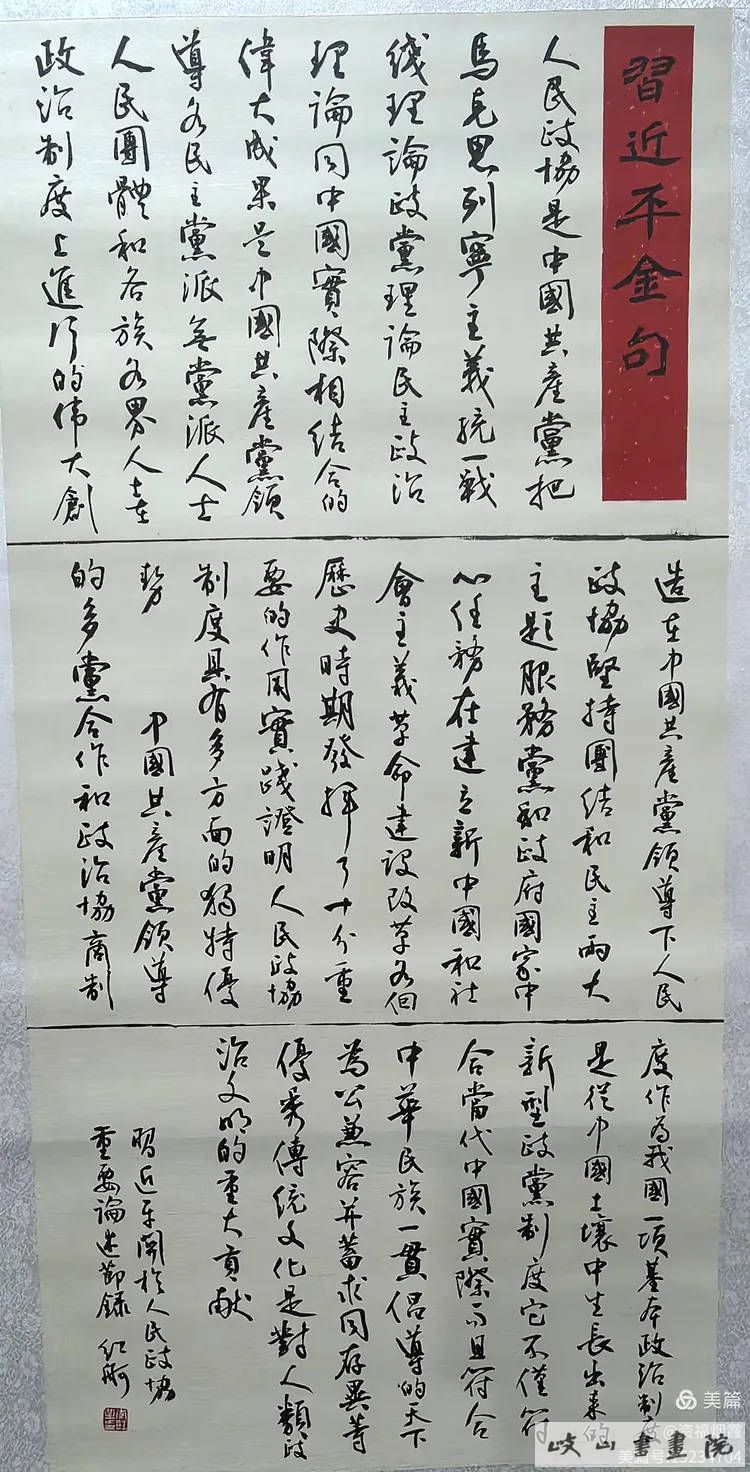 習近平金句
人民政協是中國共產黨把
馬克思列寧主義統一戰
线理論政黨理論民主政治
理論同中國實際相结合的
偉大成果是中國共產黨領
導各民主黨派無黨派人士
人民團體和各族各界人士在
政治制度上進行的偉大創
造在中國共產黨領導下人民
政協堅持團结和民主兩大
主題服務黨和政府國家中
心任務在建立新中國和社
會主義革命建設改革各個
歷史時期發揮了十分重
要的作用實踐證明人民政協
制度具有多方面的獨特優
勢　中國共產黨領導
的多黨合作和政治協商制
度作為我國一項基本政治制度
是從中國土壤中生長出来的
新型政黨制度它不僅符
合當代中國實際而且符合
中華民族一貫倡導的天下
為公兼容并蓄求同存異等
優秀傳統文化是對人類政
治文明的重大貢献
習近平關於人民政協
重要論述節録
美篇
@资福烟霞
美篇号
岐山書畫院